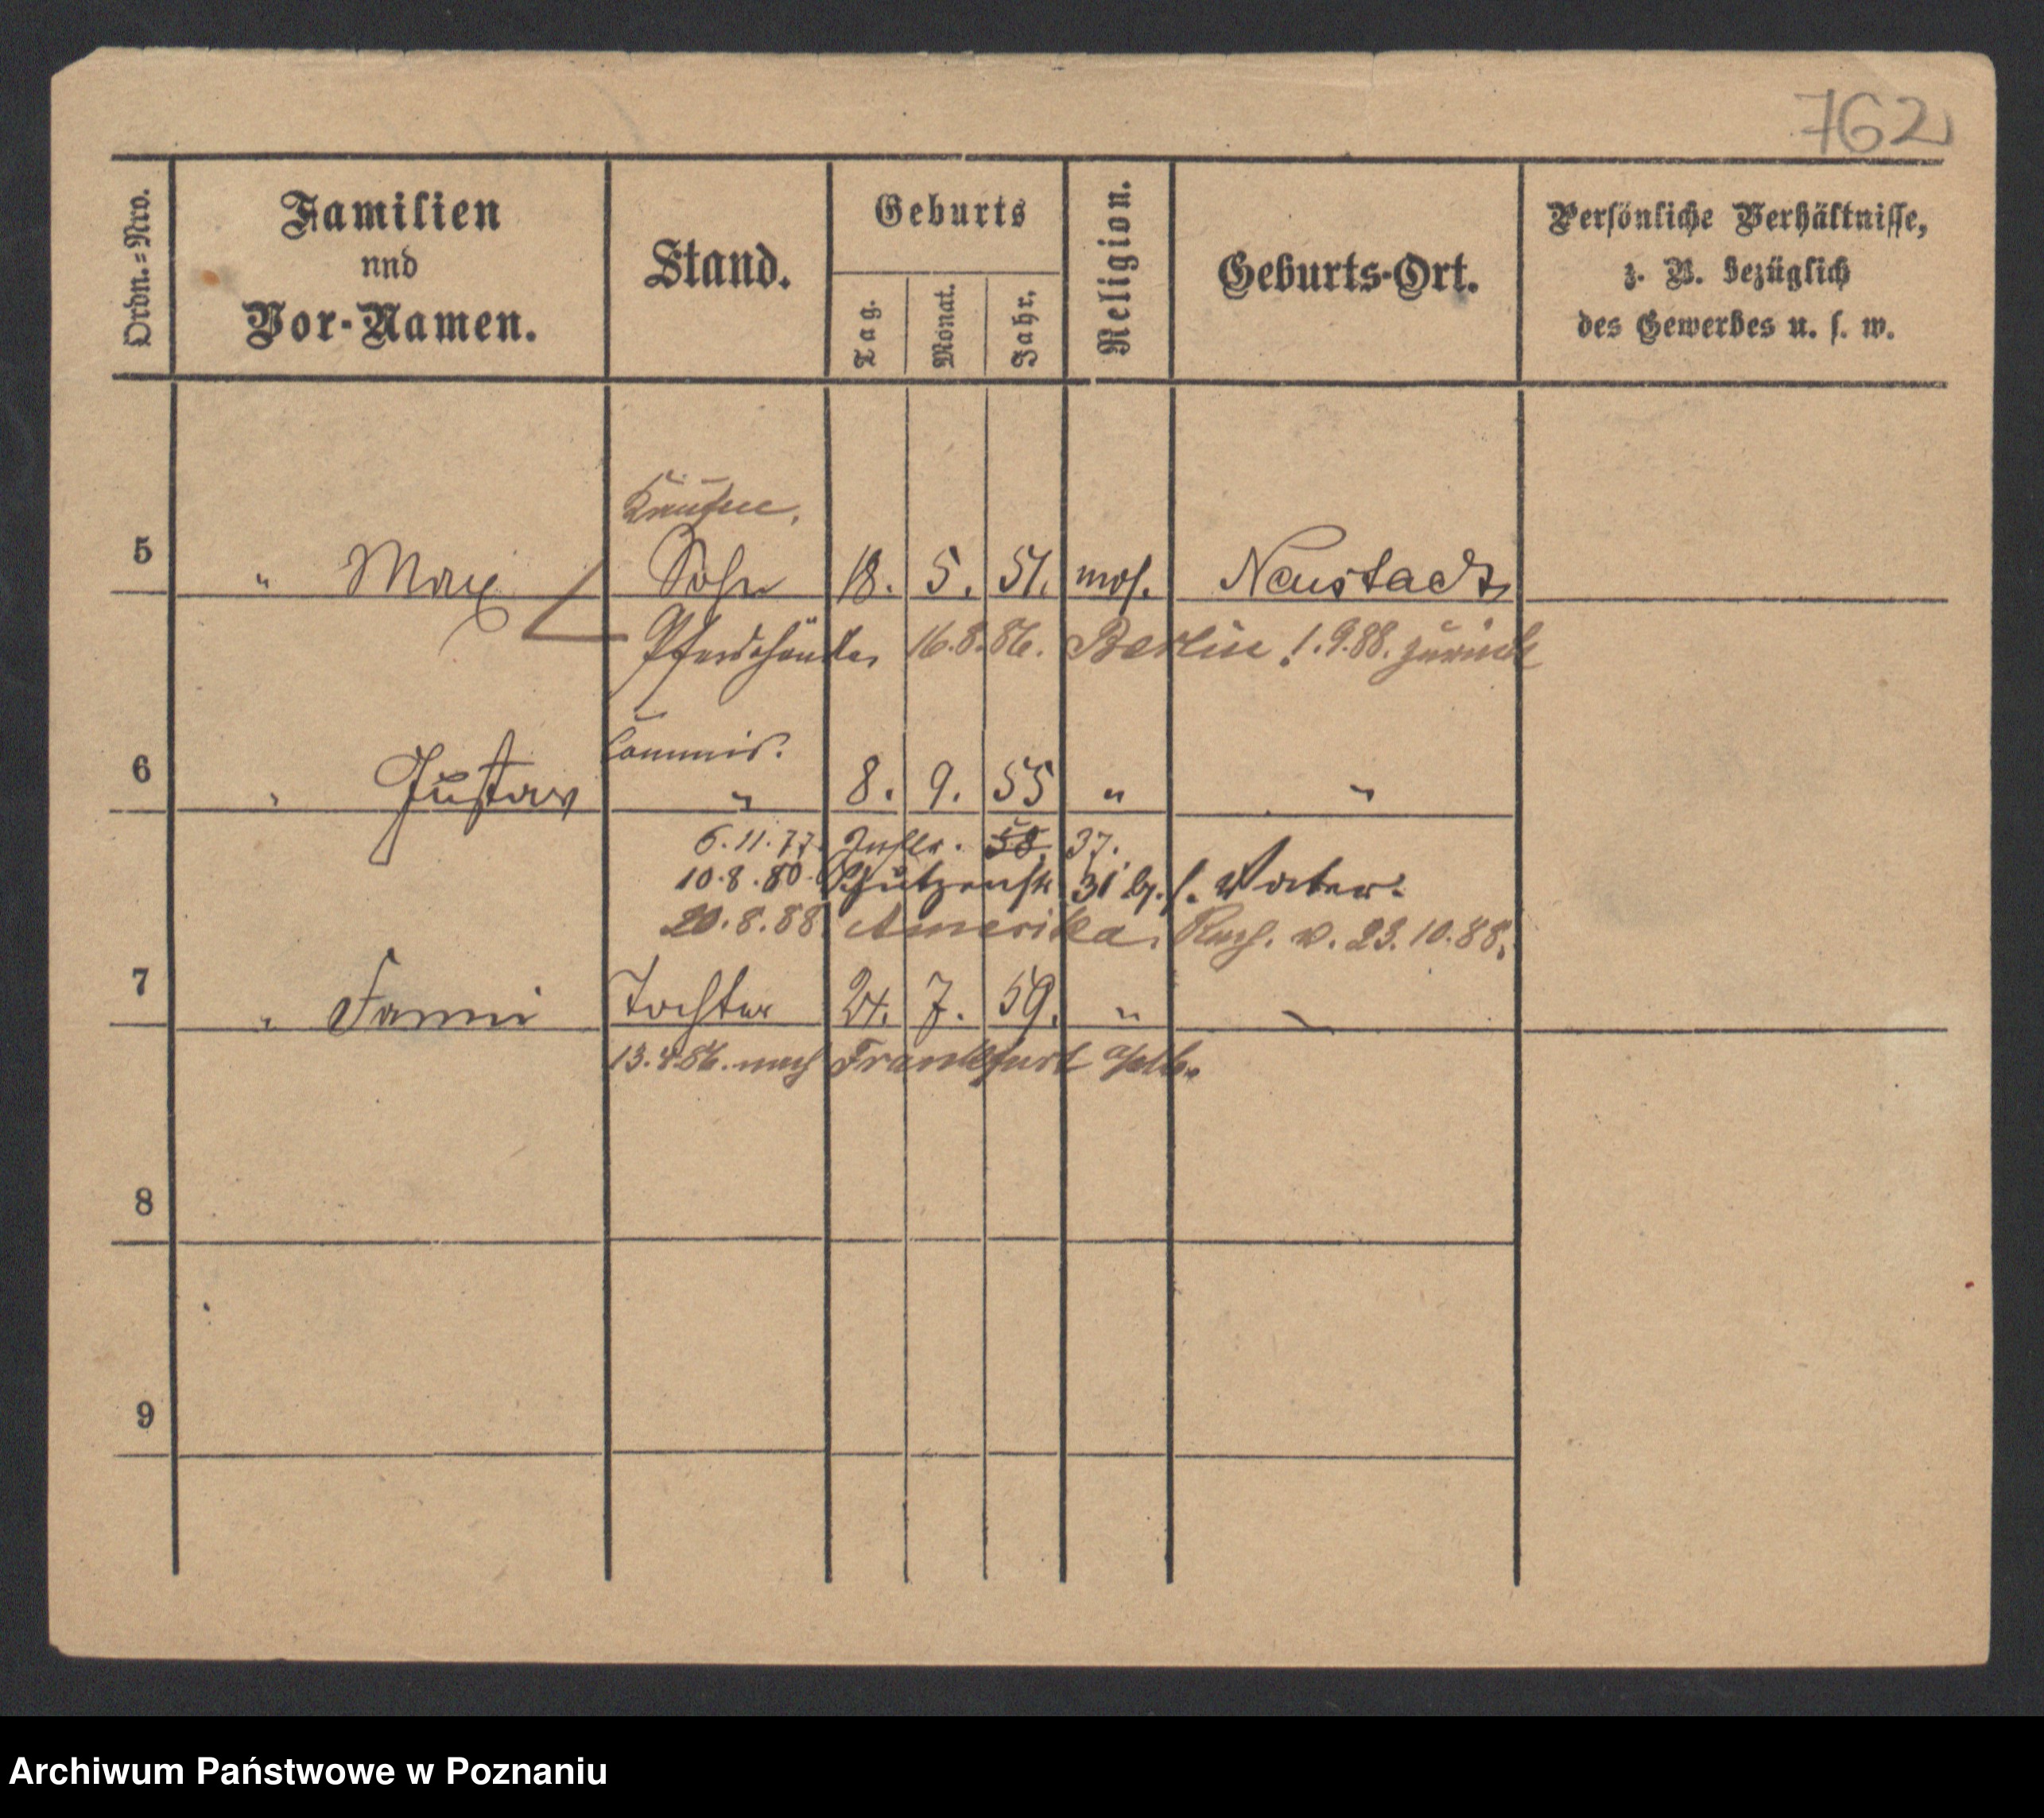 762
Ordn.=Nro.
Familien
und
Vor-Namen.
Stand.
Geburts
Tag.
Monat.
Jahr.
Religion.
Geburts-Ort.
Persönliche Verhältnisse,
z. B. bezüglich
des Gewerbes u. s. w.
Kaufm.
5 " Max Sohn 18. 5. 51. mos. Neustadt
Pferdehändler 16.8.86. Berlin. 1.9.88. zurück
Commis.
6 " Gustav " 8. 9. 55 " "
6.11.77. 58, 37.
10.8.80. Schützenstr 31 b. s. Vater.
20.8.88. Amerika. v. 23.10.88.
7 " Fanni Tochter 24. 7. 59. "
13.4.86. nach Frankfurt
8
9
Archiwum Państwowe w Poznaniu